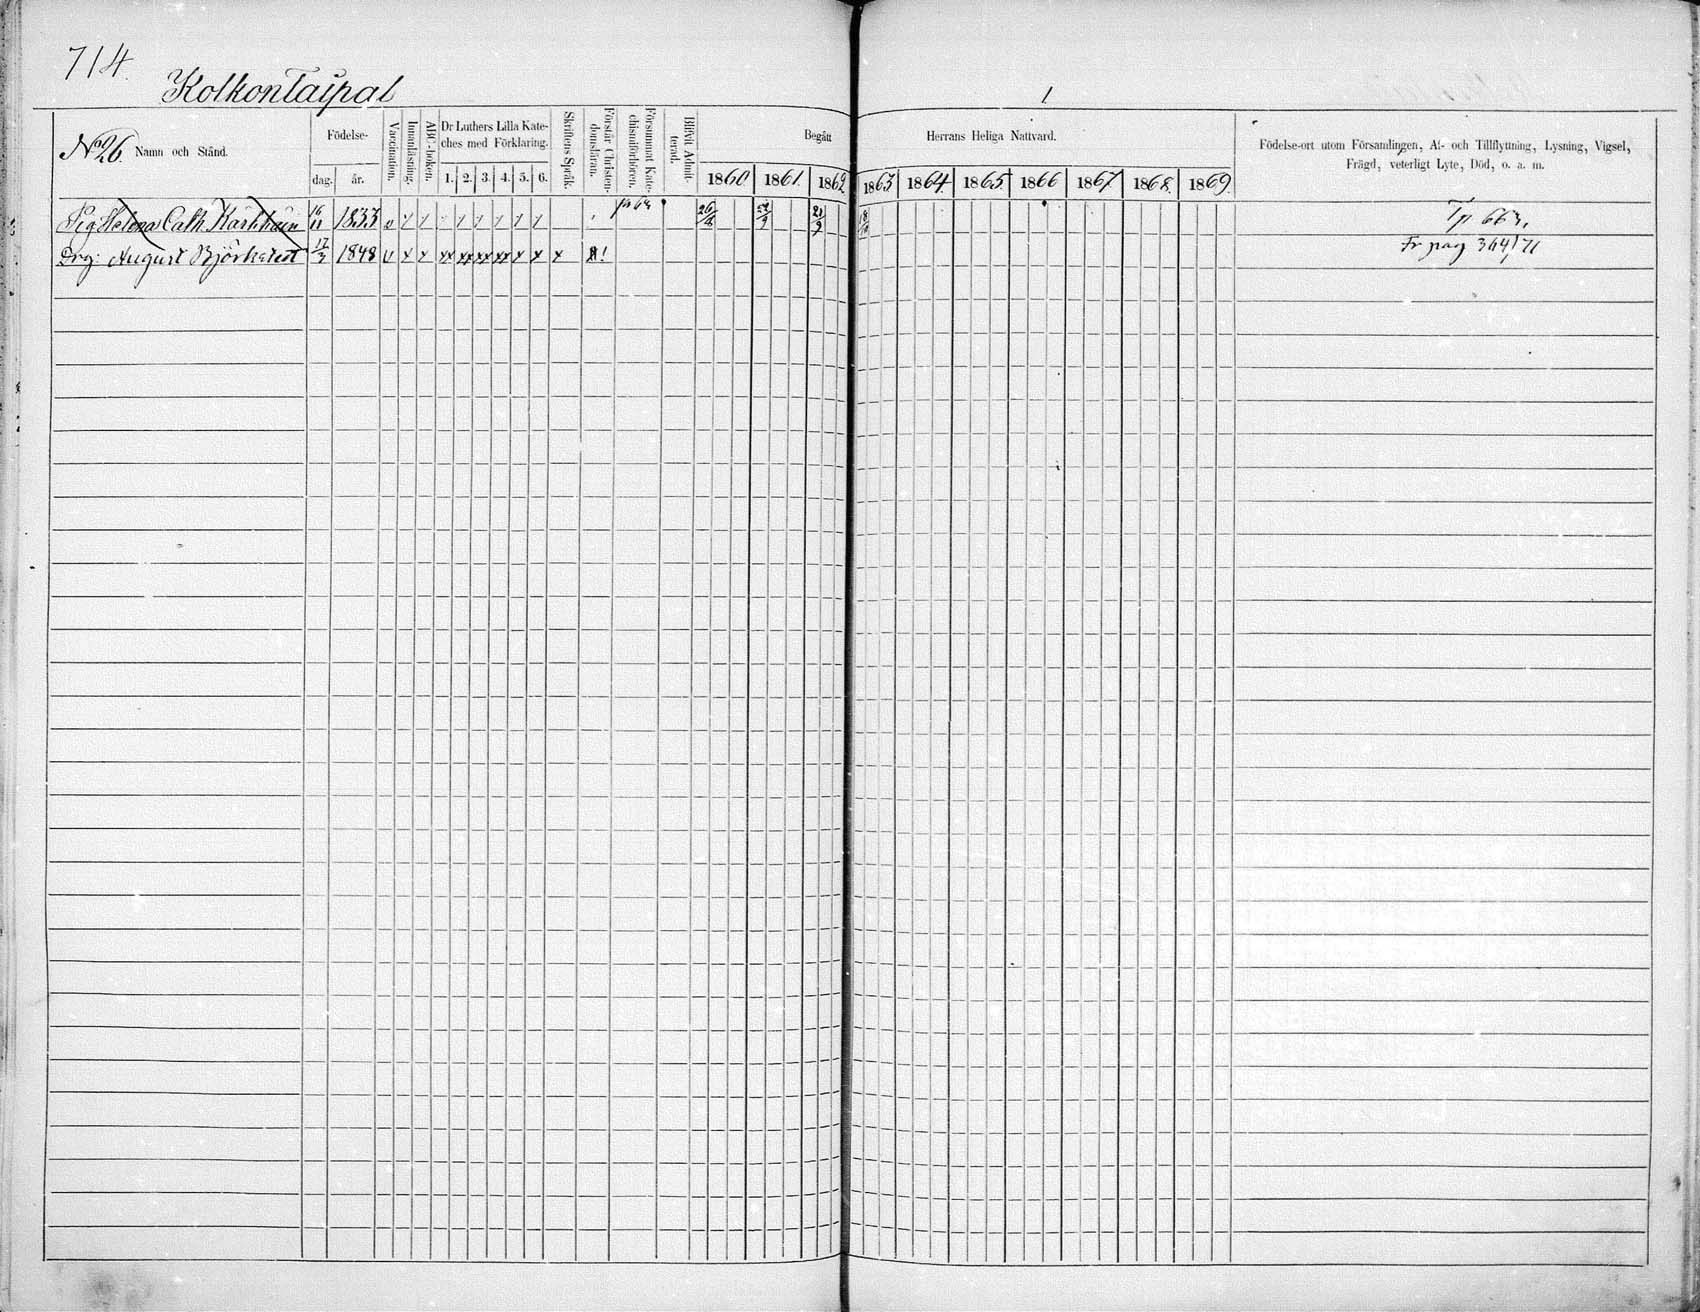 714.
Kolkontaipal
No 26. Namn och Stånd.
Födelse-
dag. år.
Vaccination.
Innanläsning.
ABC-boken.
Dr Luthers Lilla Kate-
ches med Förklaring.
1. 2. 3. 4. 5. 6.
Skriftens Språk.
Förstår Christen-
domsläran.
Försummat Kate-
chismiförhören.
Blifvit Admit-
terad.
Begått Herrans Heliga Nattvard.
1860 1861 1862 1863 1864 1865 1866 1867 1868 1869
Födelse-ort utom Församlingen, Af- och Tillflyttning, Lysning, Vigsel,
Frägd, veterligt Lyte, Död, o. a. m.
Pig Helena Cath. 1833 26/8 21/9 18/10 663.
Drg: August Björkstedt 17/3 1848 Fr pag 364/71